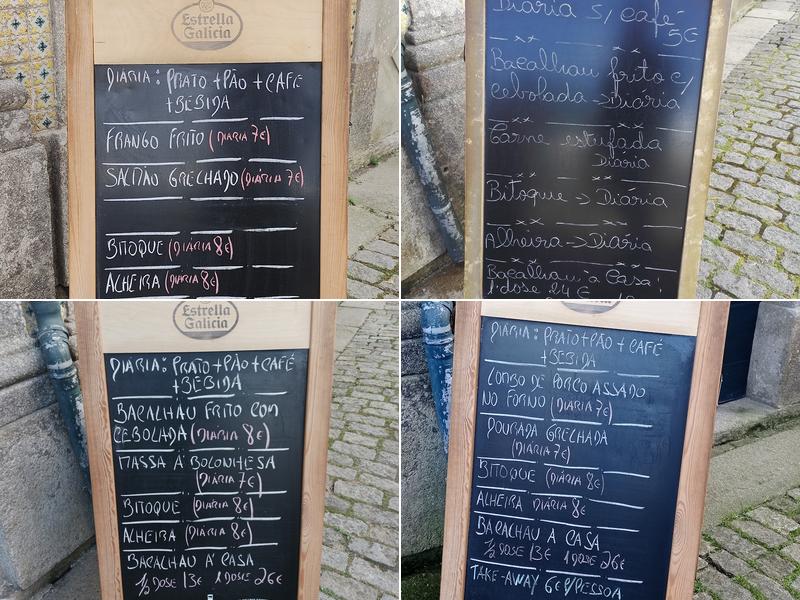 Estrella
Galicia
DIÁRIA: PRATO + PÃO + CAFÉ
+ BEBIDA
FRANGO FRITO (DIÁRIA 7€)
SALMÃO GRELHADO (DIÁRIA 7€)
BITOQUE (DIÁRIA 8€)
ALHEIRA (DIÁRIA 8€)
Diária s/ café
5€
Bacalhau frito c/
cebolada -> Diária
Carne estufada
Diária
Bitoque -> Diária
Alheira -> Diária
Bacalhau à Casa:
1 dose 24 €
Estrella
Galicia
DIÁRIA: PRATO + PÃO + CAFÉ
+ BEBIDA
BACALHAU FRITO COM
CEBOLADA (DIÁRIA 8€)
MASSA À BOLONHESA
(DIÁRIA 7€)
BITOQUE (DIÁRIA 8€)
ALHEIRA (DIÁRIA 8€)
BACALHAU À CASA
1/2 DOSE 13€ 1 DOSE 26€
DIÁRIA: PRATO + PÃO + CAFÉ
+ BEBIDA
LOMBO DE PORCO ASSADO
NO FORNO (DIÁRIA 7€)
DOURADA GRELHADA
(DIÁRIA 7€)
BITOQUE (DIÁRIA 8€)
ALHEIRA DIÁRIA 8€
BACALHAU À CASA
1/2 DOSE 13€ 1 DOSE 26€
TAKE-AWAY 6€ P/PESSOA